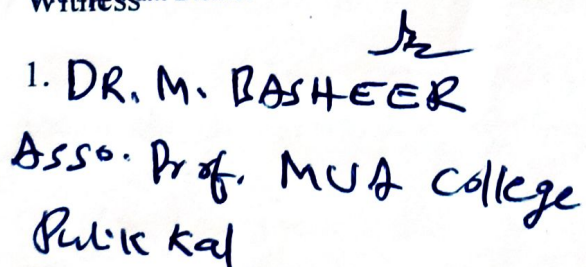 Witness
1. DR. M. BASHEER
Asso. Prof. MUA College
Pulikkal